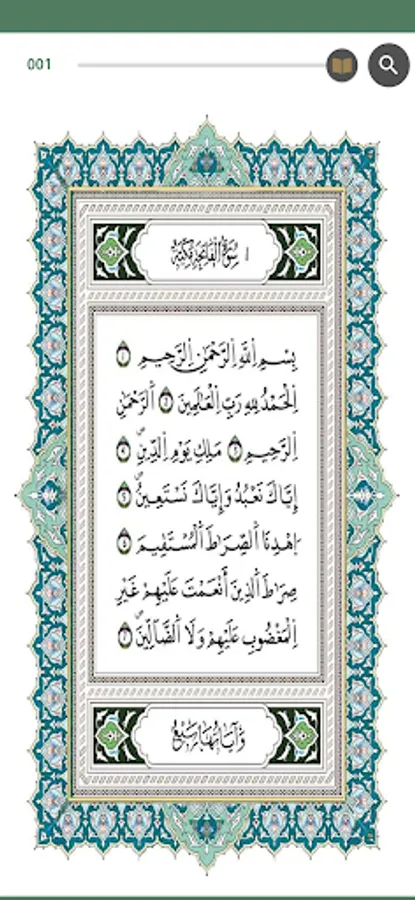 001
١ سُورَةُ الْفَاتِحَةِ مَكِّيَّةٌ
بِسْمِ اِ۬للَّهِ اِ۬لرَّحْمَٰنِ اِ۬لرَّحِيمِ ١
اِ۬لْحَمْدُ لِلهِ رَبِّ اِ۬لْعَٰلَمِينَ ٢ اَ۬لرَّحْمَٰنِ
اِ۬لرَّحِيمِ ٣ مَٰلِكِ يَوْمِ اِ۬لدِّينِ ٤
إِيَّاكَ نَعْبُدُ وَإِيَّاكَ نَسْتَعِينُ ٥
اِ۪هْدِنَا اَ۬لصِّرَٰطَ اَ۬لْمُسْتَقِيمَ ٦
صِرَٰطَ اَ۬لذِينَ أَنْعَمْتَ عَلَيْهِمْ غَيْرِ
اِ۬لْمَغْضُوبِ عَلَيْهِمْ وَلَا اَ۬لضَّآلِّينَ ٧
وَآيَاتُهَا سَبْعٌ